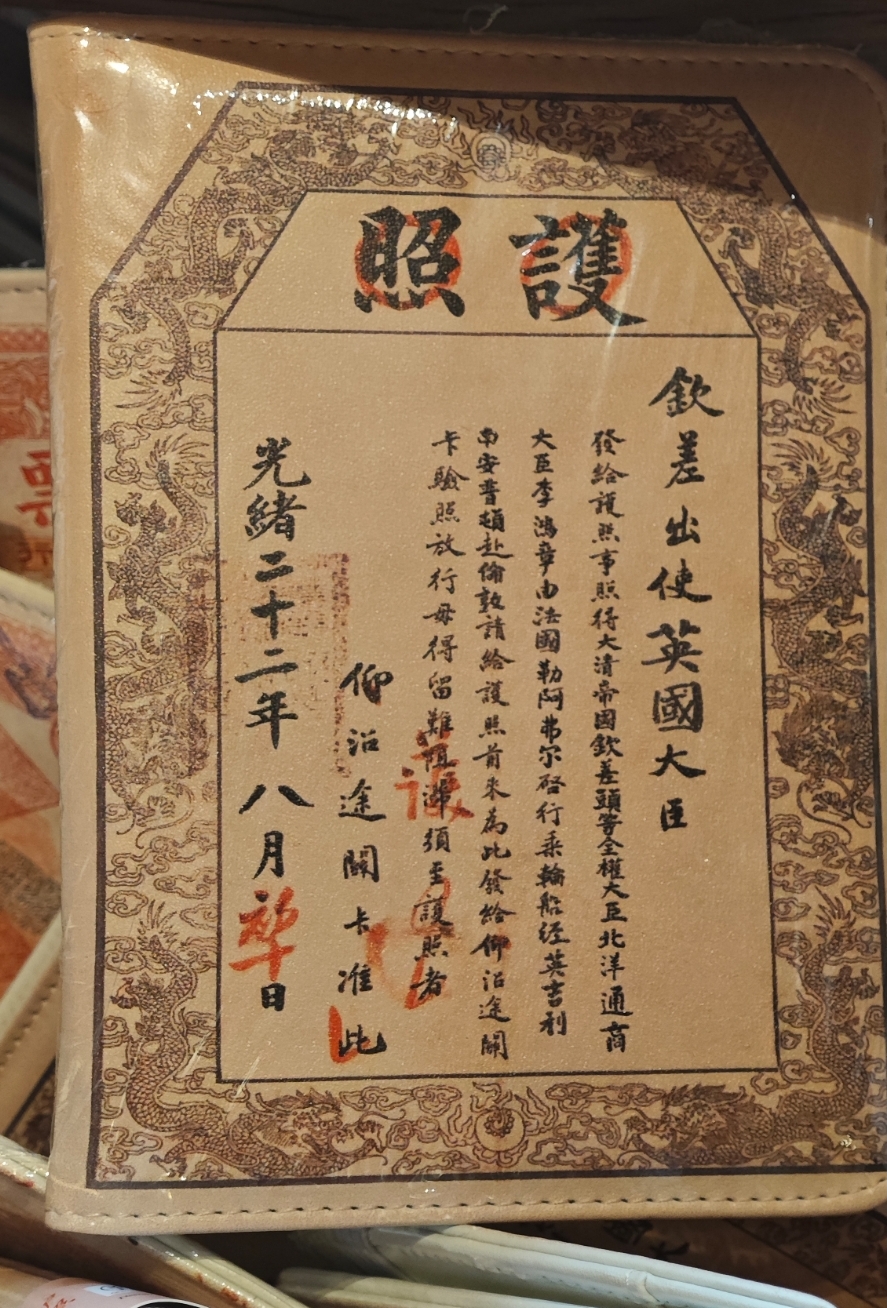 護照
欽差出使英國大臣
發給護照事照得大清帝國欽差頭等全權大臣北洋通商
大臣李鴻章由法國勒阿弗尔啓行乘輪船經英吉利
南安普頓赴倫敦請給護照前來為此發給仰沿途關
卡驗照放行毋得留難阻滯須至護照者
仰沿途關卡准此
光緒二十二年八月初十日